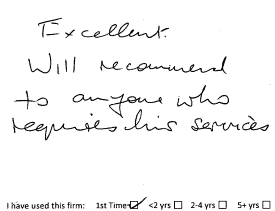 Excellent.
Will recommend
to anyone who
requires his services
I have used this firm: 1st Time ☑ <2 yrs ☐ 2-4 yrs ☐ 5+ yrs ☐